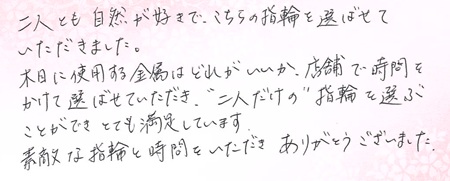 二人とも自然が好きで、こちらの指輪を選ばせて
いただきました。
木目に使用する金属はどれがいいか、店舗で時間を
かけて選ばせていただき、"二人だけの"指輪を選ぶ
ことができとても満足しています
素敵な指輪と時間をいただき ありがとうございました.